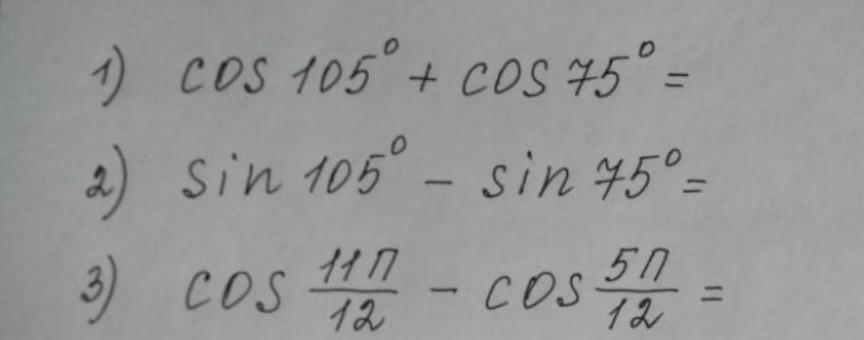 1) cos 105° + cos 75° =
2) sin 105° - sin 75° =
3) cos 11П/12 - cos 5П/12 =